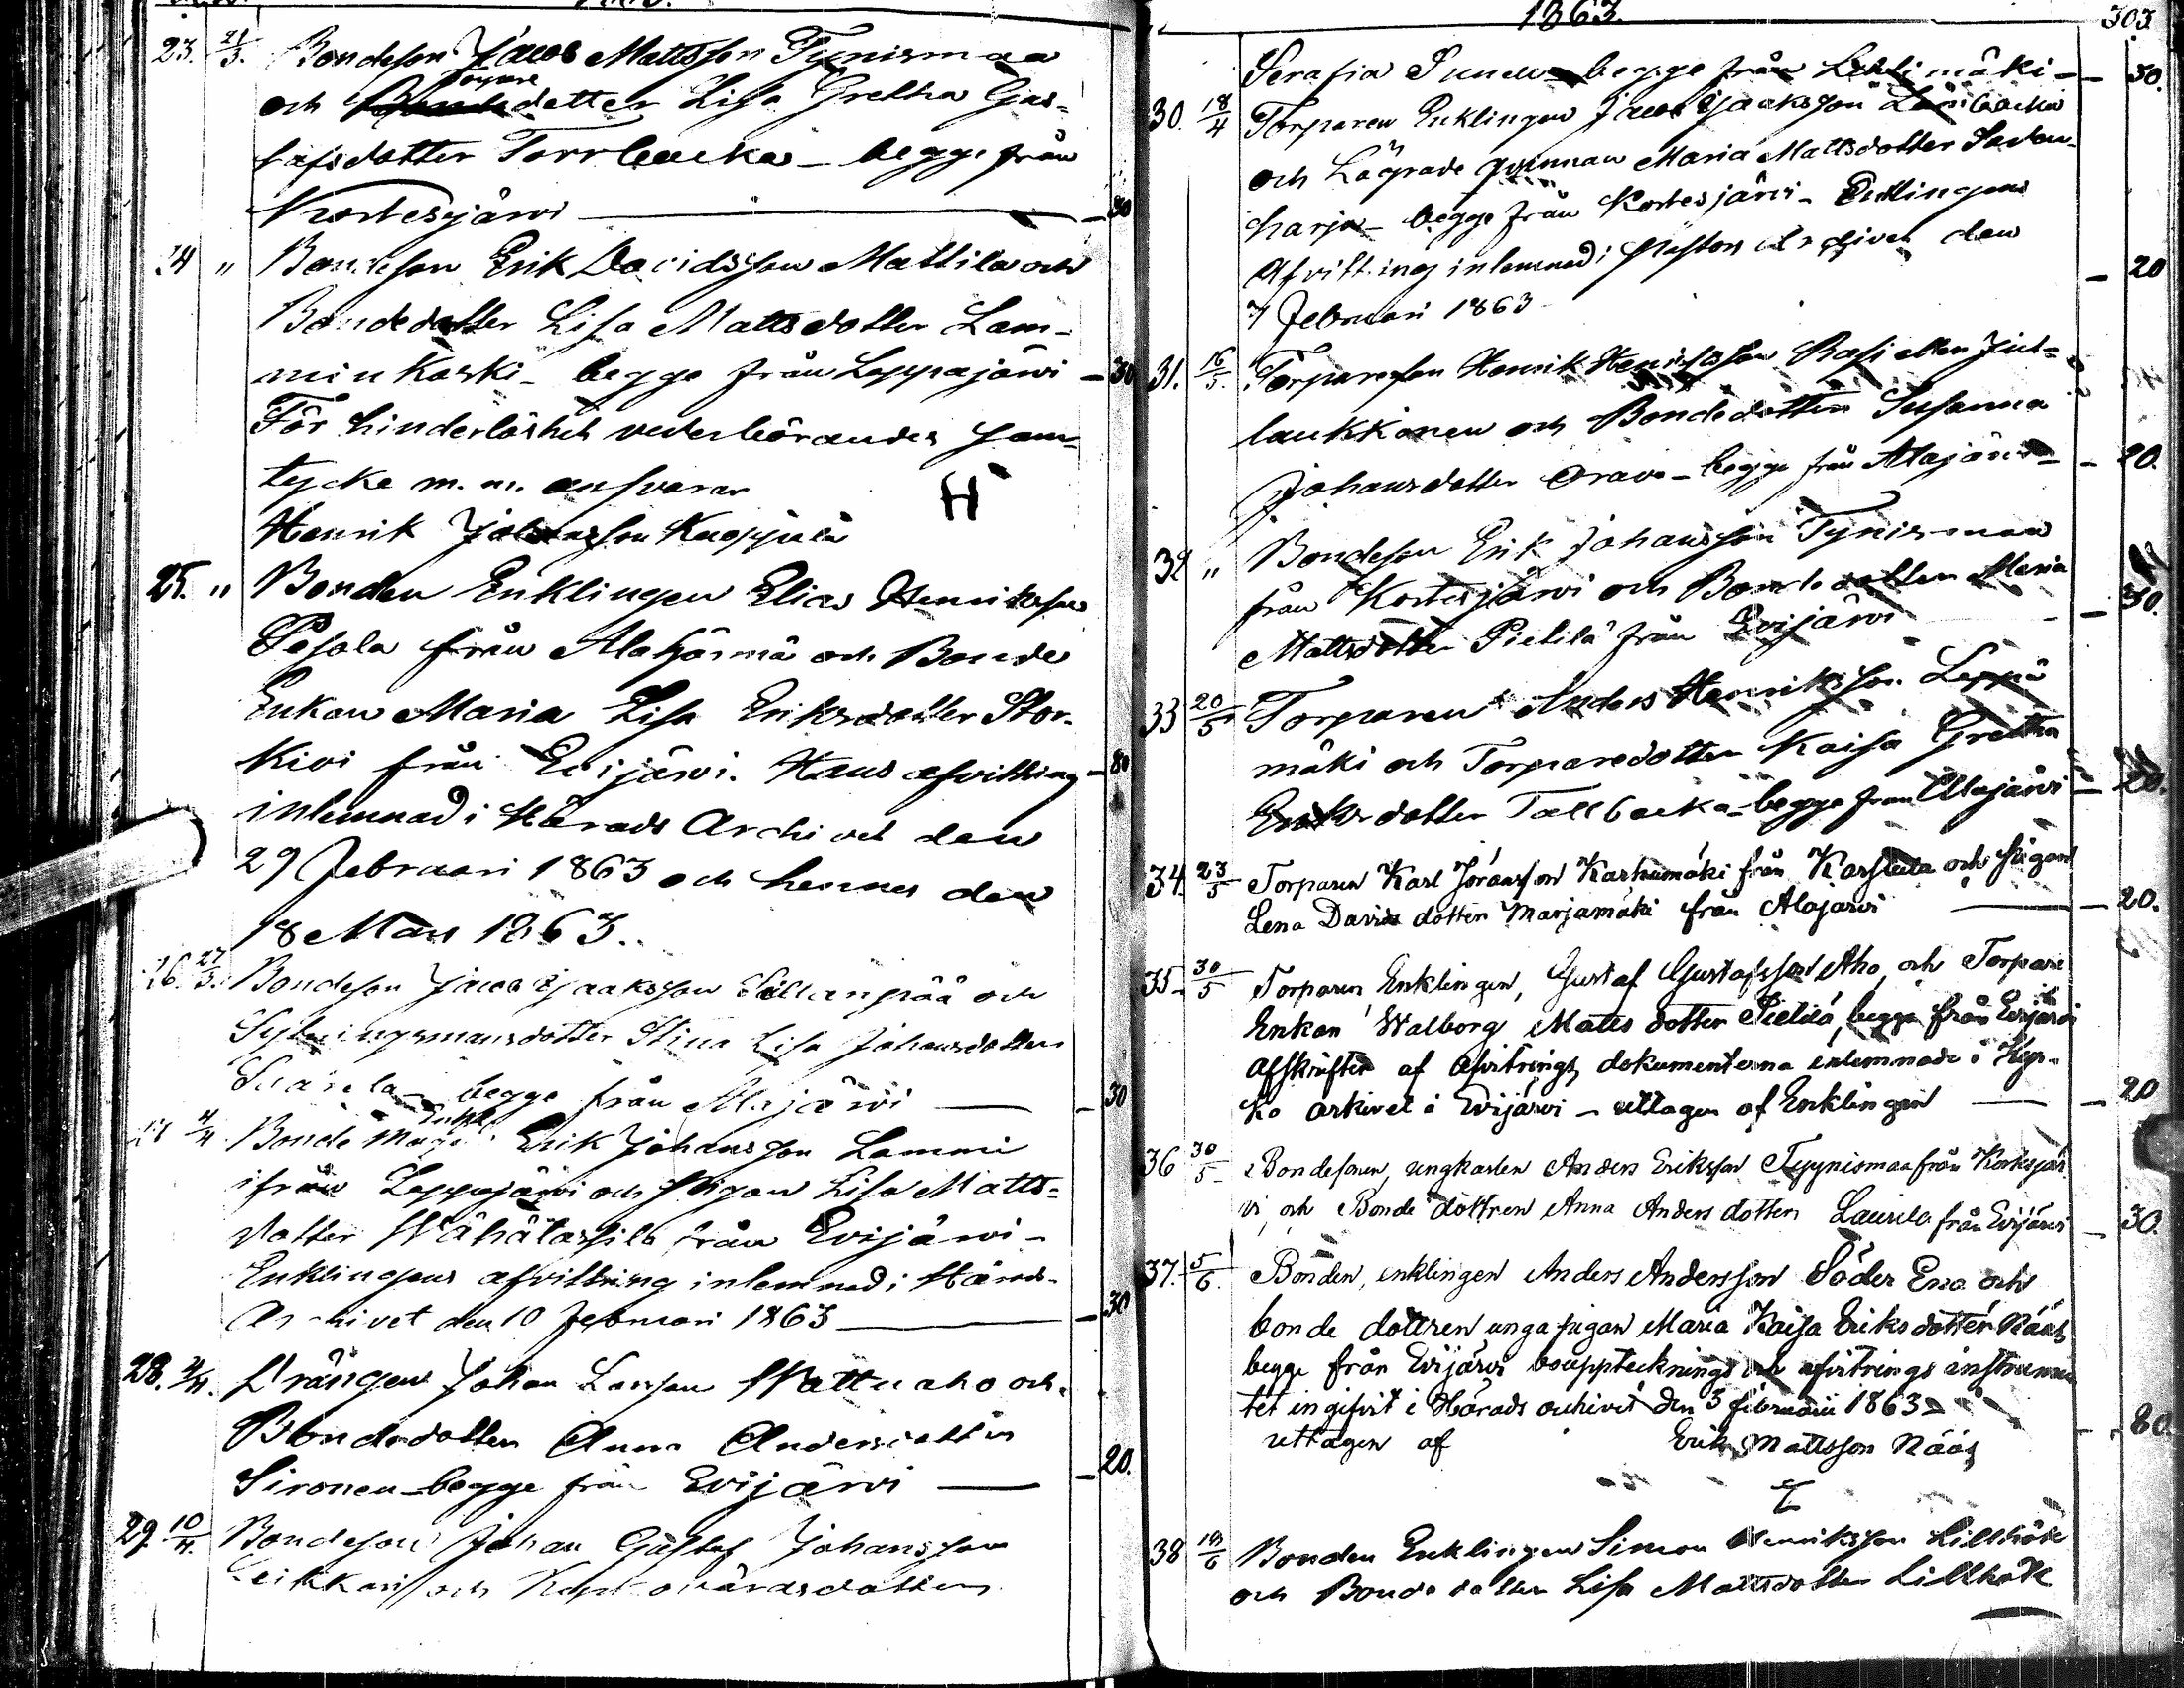 23. 21/3. Bondeson Jacob Mattsson Tynismaa
och Torpare dotter Lisa Gretha Gus=
tafsdotter Torrbacka - begge från
Kortesjärvi - 30
24 " Bondeson Erik Davidsson Mattila och
Bondedotter Lisa Mattsdotter Lam-
minkoski - begge från Lappajärvi - 30
För hinderlöshet vederbörandes sam-
tycke m. m. ansvarar
Henrik Johansson H
25. " Bonden Enklingen Elias Henriksson
Pesola från Alahärmä och Bonde
Enkan Maria Lisa Eriksdotter Stor-
kivi från Evijärvi. Hans afvittring - 80
inlemnad i Härads Archivet den
29 Februari 1863 och hennes den
18 Mars 1863.
26. 27/3. Bondeson Jacob Isaaksson Sillanpää och
Sytningsmansdotter Stina Lisa Johansdotter
begge från Alajärvi - 30
4/4. Bonde Enkl. Erik Johansson Lammi
ifrån Lappajärvi och Pigan Lisa Matts=
dotter Wähätassila från Evijärvi -
Enklingens afvittring inlemnad i Härads-
Archivet den 10 Februari 1863 - 30
28. 4/4. Drängen Johan Larsson Wattuaho och
Bondedotter Anna Andersdotter
Sironen - begge från Evijärvi - 20.
29. 10/4. Bondeson Johan Gustaf Johansson
och Kyrkovärdsdotter
1863. 303.
Serafia Sunds - begge från Lehtimäki - 30.
30. 18/4 Torparen Enklingen Jacob Isaaksson Länsbacka
och Lägrade qvinnan Maria Mattsdotter Sadan-
harju - begge från Kortesjärvi - Enklingens
Afvittring inlemnad i Pastors Archivet den - 20
7 Februari 1863
31. 16/5. Torpareson Henrik Henriksson Rasi eller Jus-
laukkonen och Bondedotter Susanna
Johansdotter Orava - begge från Alajärvi - 20.
32 " Bondeson Erik Johansson Tynismaa
från Kortesjärvi och Bondedotter Maria
Mattsdotter Pietilä från Evijärvi - 30.
33 20/5 Torparen Anders Henriksson Leppä
mäki och Torparedotter Kaisa Gretha
Eriksdotter Tallbacka - begge från Alajärvi - 20.
34. 23/5 Torparen Karl Jöransson Karhumäki från Karstula och Pigan
Lena Davids dotter Marjamäki från Alajärvi - 20.
35. 30/5 Torparen, Enklingen, Gustaf Gustafsson Aho, och Torpare
Enkan Walborg Matts dotter Pietilä, begge från Evijärvi
Afskrifter af Afvitrings dokumenterna inlemnade i Kyr-
ko arkivet i Evijärvi - uttagen af Enklingen - 20
36 30/5 Bondesonen, ungkarlen Anders Eriksson Tyynismaa från Kortesjär
vi, och Bonde dottren Anna Anders dotter Laurila från Evijärvi - 30.
37. 5/6. Bonden, enklingen Anders Andersson Söder Ena och
bonde dottren unga pigan Maria Kaisa Eriks dotter Nääs
begge från Evijärvi bouppteknings och afvitrings instrumen
tet ingifvit i Härads arkivet den 3 februarii 1863 - 80
uttagen af Erik Mattsson Nääs
38 19/6 Bonden Enklingen Simon Henriksson Lillhök
och Bonde dotter Lisa Mattsdotter Lillhök